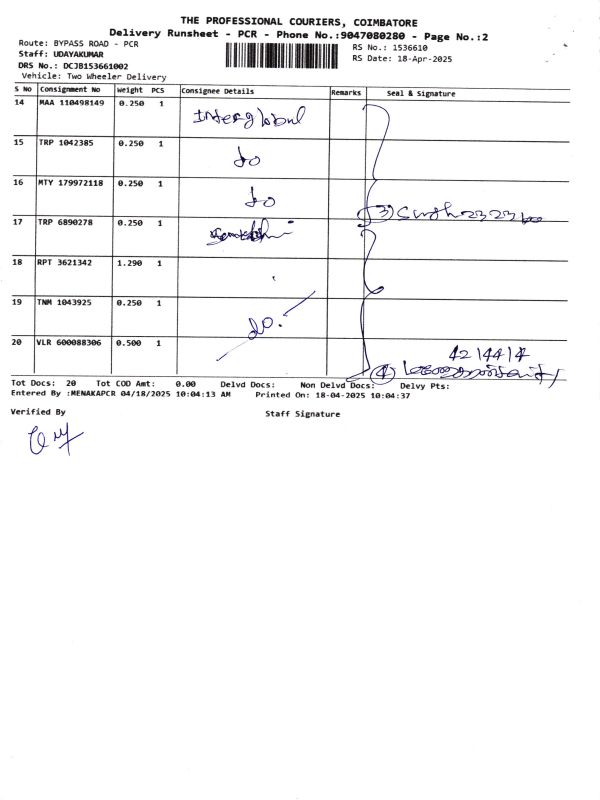 THE PROFESSIONAL COURIERS, COIMBATORE
Delivery Runsheet - PCR - Phone No.:9047080280 - Page No.:2
Route: BYPASS ROAD - PCR
RS No.: 1536610
Staff: UDAYAKUMAR
RS Date: 18-Apr-2025
DRS No.: DCJB153661002
Vehicle: Two Wheeler Delivery
S No Consignment No Weight PCS Consignee Details Remarks Seal & Signature
14 MAA 110498149 0.250 1
15 TRP 1042385 0.250 1 do
16 MTY 179972118 0.250 1 do
17 TRP 6890278 0.250 1
18 RPT 3621342 1.290 1
19 TNM 1043925 0.250 1 do.
20 VLR 600088306 0.500 1
4214414
Tot Docs: 20 Tot COD Amt: 0.00 Delvd Docs: Non Delvd Docs: Delvy Pts:
Entered By :MENAKAPCR 04/18/2025 10:04:13 AM Printed On: 18-04-2025 10:04:37
Verified By Staff Signature